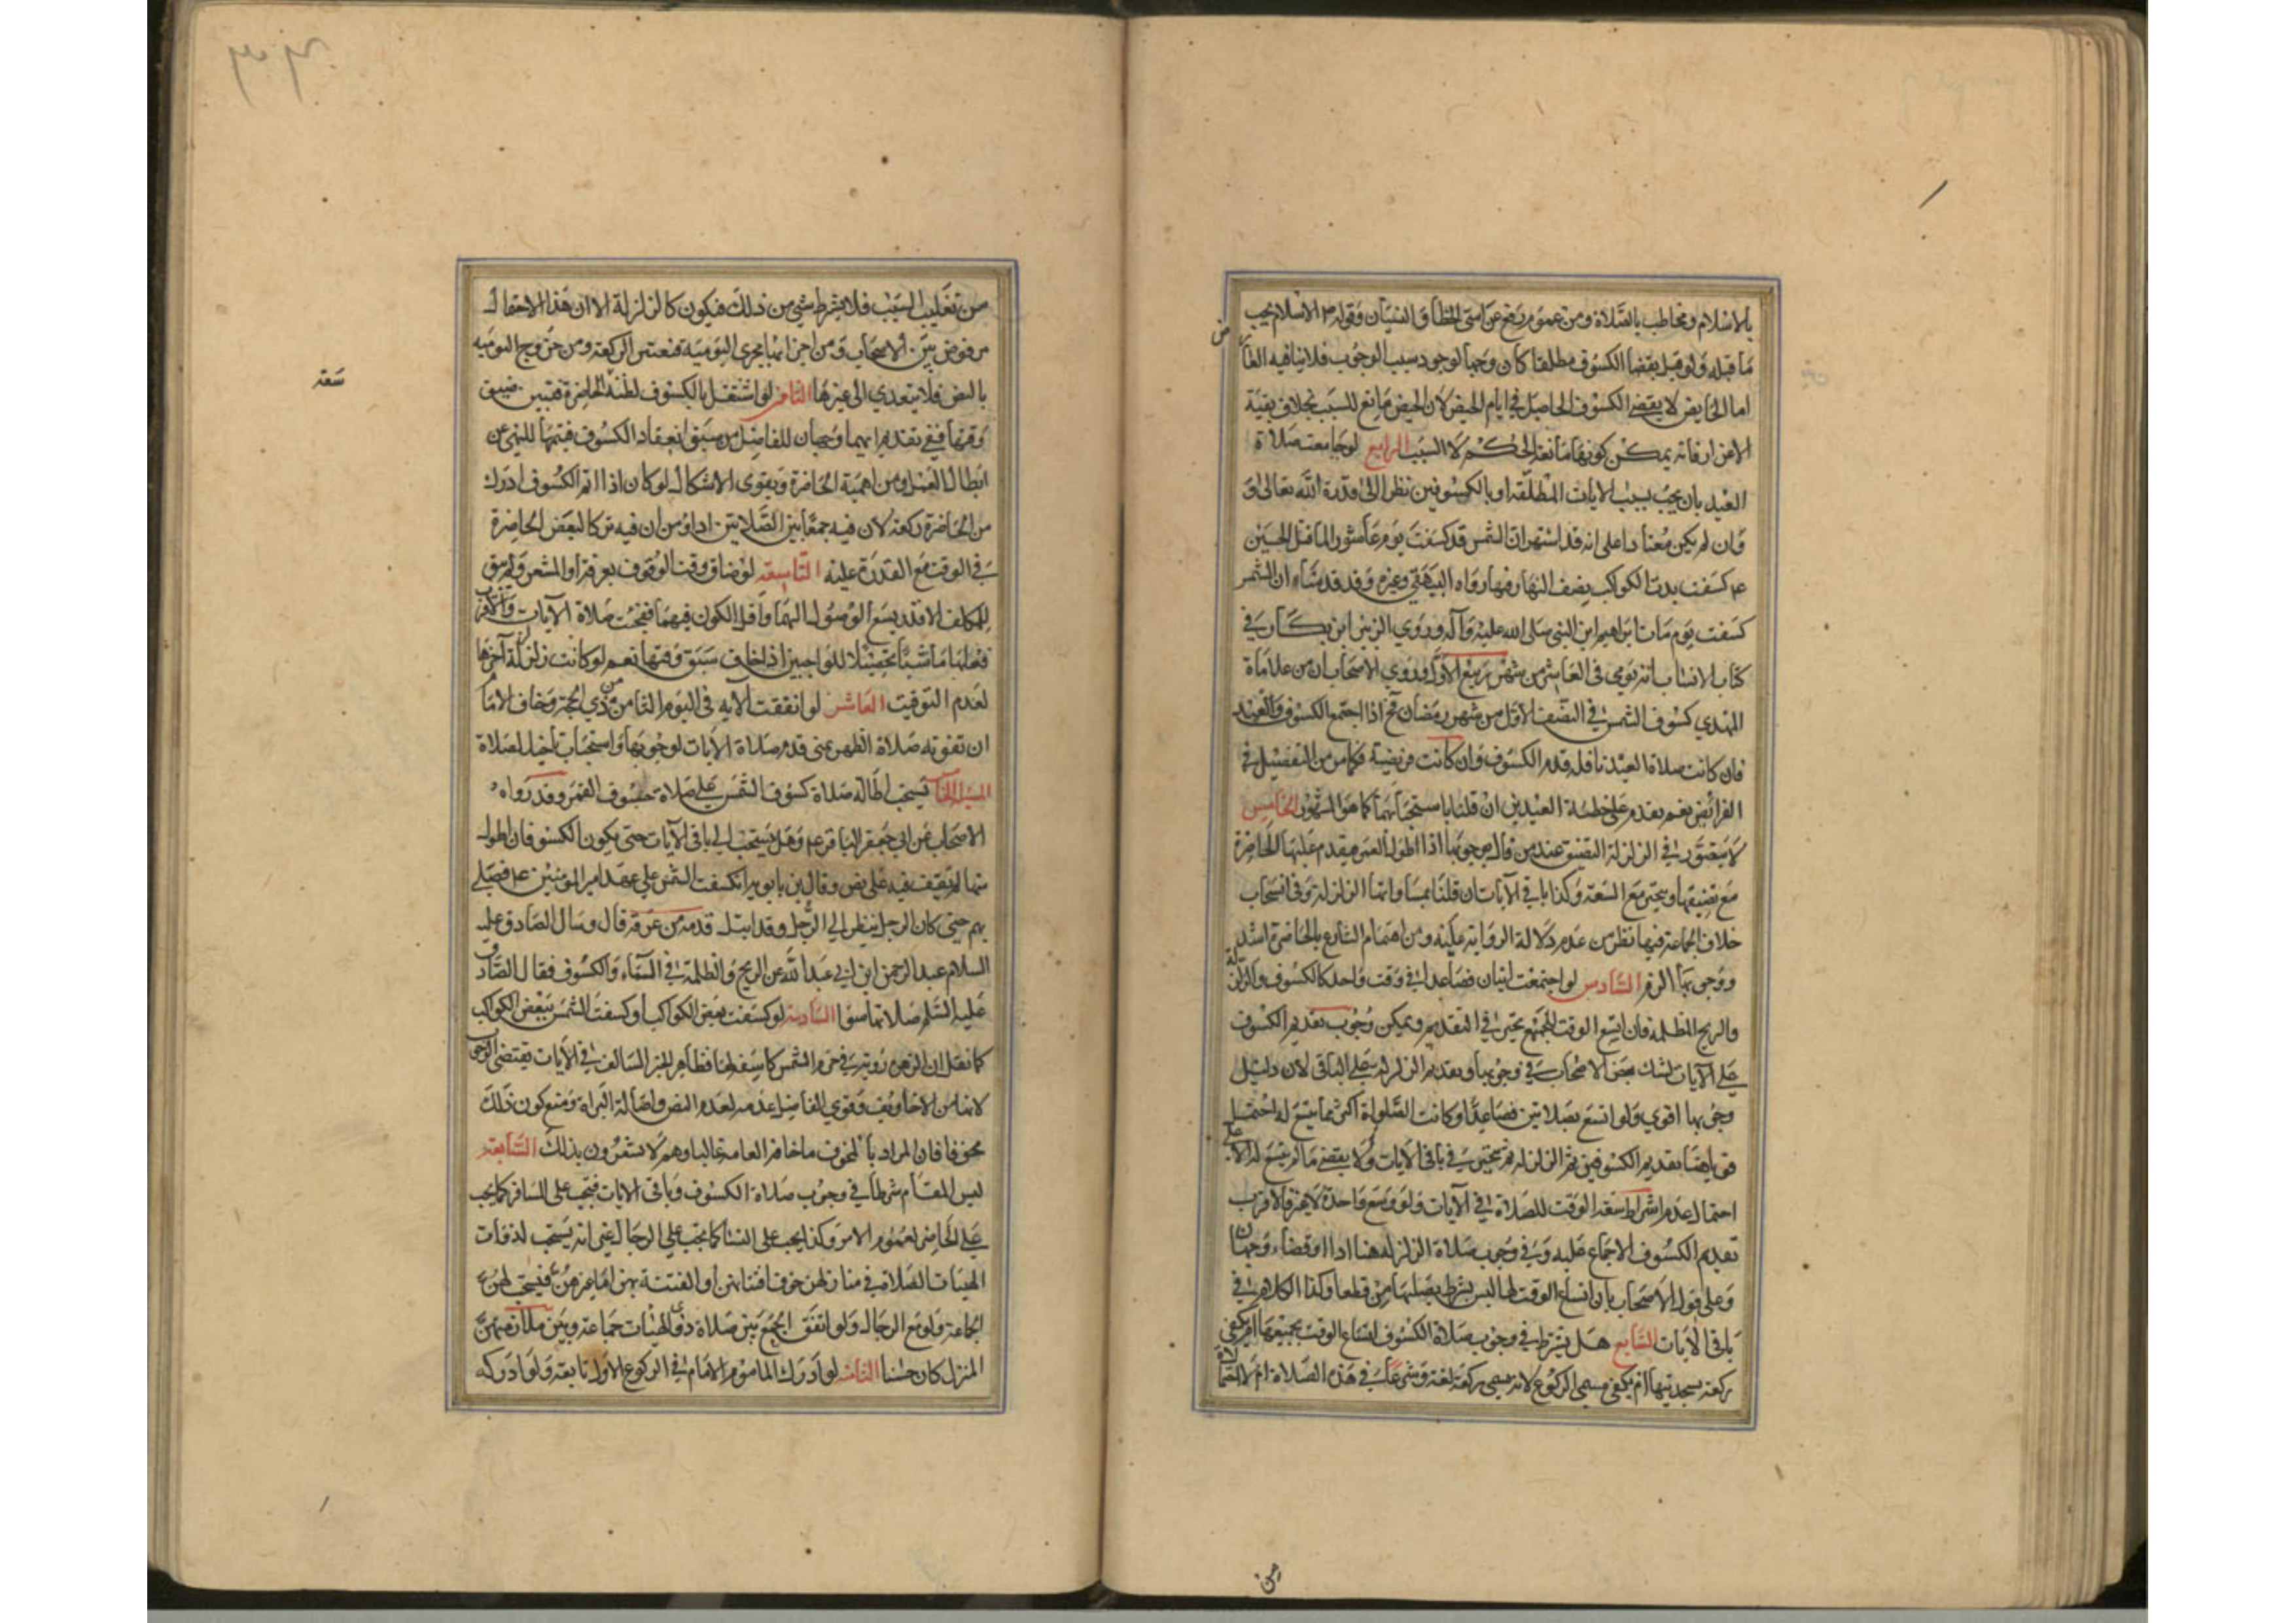 بالاسلام ومخاطب بالصلاة ومن عموم رفع عن امتى الخطأ والنسيان وقوله ص الاسلام يجب
ما قبله ولو قيل بقضاء الكسوف مطلقا كان وجها لوجود سبب الوجوب فلا ينافيه
اما الحايض لا يقضي الكسوف الحاصل في ايام الحيض لان الحيض مانع للسبب بخلاف بقية
الاعذار فانه يمكن كونها مانعة الحكم لا السبب الرابع لو جامعت صلاة
العيد بان يجب بسبب الايات المطلقة او بالكسوفين نظرا الى قدرة الله تعالى و
وان لم يكن معتادا على انه قد اشتهر ان الشمس قد كسفت يوم عاشور لما قتل الحسين
ع كسفت بدت الكواكب نصف النهار فيها رواه البيهقي وغيره وقد قدمنا ان الشمس
كسفت يوم مات ابراهيم ابن النبي صلى الله عليه وآله وروي الزبير ابن بكار في
كتاب الانساب انه توفى في العاشر من شهر ربيع الاول وروي الاصحاب ان من علاماة
المهدي كسوف الشمس في النصف الاول من شهر رمضان فح اذا اجتمع الكسوف والعيد
فان كانت صلاة العيد نافلة قدم الكسوف وان كانت فريضة فكما مر من التفصيل في
الفرائض نعم تقدم على خطبة العيدين ان قلنا باستحبابهما كما هو المشهور الخامس
لا يتصور في الزلزلة التضيق عند من قال بوجوبها اذا اطول العمر فيقدم عليها الحاضرة
مع تضيقها ويتخير مع السعة وكذا باقي الآيات ان قلنا بمساواتها الزلزلة وفى انسحاب
خلاف الجماعة فيها نظر من عدم دلالة الرواية عليه ومن اهتمام الشارع بالحاضرة اشد
ووجوبها اوفر السادس لو اجتمعت ايتان فصاعدا في وقت واحد كالكسوف والزلزلة
والريح المظلمة فان اتسع الوقت للجميع تخير في التقديم ويمكن وجوب تقديم الكسوف
على الآيات لشك بعض الاصحاب في وجوبها وتقديم الزلزلة على الباقي لان دليل
وجوبها اقوي ولو اتسع لصلاتين فصاعدا وكانت الصلواة اكثر مما يتسع له احتمل
قويا هنا تقديم الكسوفين ثم الزلزلة ثم يتخير في باقي الآيات ولا يقضي ما لم يتسع له الا على
احتمال عدم اشتراط سعة الوقت للصلاة في الآيات ولو وسع واحدة لا غير فالاقرب
تقديم الكسوف للاجماع عليه وفي وجوب صلاة الزلزلة هنا اداء او قضاء وجهان
وعلى قول الاصحاب بان اتساع الوقت لها ليس بشرط يصليها من قطعا وكذا الكلام في
باقي الآيات السابع هل يشترط في وجوب صلاة الكسوف اتساع الوقت لجميعها ام يكفي
ركعة بسجدتيها ام يكفي مسمى الركوع لانه يسمى ركعة لغة وشرعا في هذه الصلاة ام لا
من
من تغليب السبب فلا يشترط شي من ذلك فيكون كالزلزلة الا ان هذا الاحتمال
مرفوض بين الاصحاب ومن اجرائها مجرى اليومية فتعتبر الركعة ومن خروج اليومية
بالنص فلا يتعدي الى غيرها الثامن لو اشتغل بالكسوف لظنه الحاضرة فتبين ضيق
وقتها ففي تقديم ايهما وجهان للفاضل من سبق انعقاد الكسوف فيتمها للنهي عن
ابطال العمل ومن اهمية الحاضرة ويقوى الاشكال لو كان اذا اتم الكسوف ادرك
من الحاضرة ركعة لان فيه جمعا بين الصلاتين اداء ومن ان فيه تركا لبعض الحاضرة
في الوقت مع القدرة عليه التاسعة لو ضاق وقت الوقوف بعرفة او المشعر ولم يبق
للمكلف الا قدر يسع الوصول اليهما واقل الكون فيهما ففجئت صلاة الآيات والاقرب
فعلها ماشيا تحصيلا للواجبين اذا خاف سبق وقتها نعم لو كانت زلزلة اخرها
لعدم التوقيت العاشر لو اتفقت الآيه فى اليوم الثامن من ذي الحجة وخاف الامام
ان تفوته صلاة الظهر بمنى قدم صلاة الآيات لوجوبها واستحباب تاخير الصلاة
تستحب اطالة صلاة كسوف الشمس على صلاة خسوف القمر وقد رواه
الاصحاب عن ابي جعفر الباقر ع وهل يستحب في باقي الآيات حتى يكون الكسوفان اطول
منها لم نقف فيه على نص وقال بن بابويه انكسفت الشمس على عهد امير المؤمنين ع فصلى
بهم حتى كان الرجل ينظر الى الرجل وقد ابتل قدمه من عرقه قال وسال الصادق عليه
السلام عبد الرحمن ابن ابي عبد الله عن الريح والظلمة في السماء والكسوف فقال الصادق
عليه السلم صلاتها سوا السادسة لو كسفت بعض الكواكب او كسفت الشمس ببعض الكواكب
كما نقل ان الزهرة رويت في جرم الشمس كاسفة لها فظاهر الخبر السالف في الآيات يقتضي الوجوب
لانها من الاخاويف وقوي الفاضل عدمه لعدم النص واصالة البراة ومنع كون ذلك
مخوفا فان المراد بالمخوف ما خافه العامة غالبا وهم لا يشعرون بذلك السابعة
ليس المقام شرطا في وجوب صلاة الكسوف وباقي الايات فتجب على المسافر كما يجب
على الحاضر لعموم الامر وكذا يجب على النساء كما تجب على الرجال غير انه يستحب لذوات
الهيئات الصلاة في منازلهن خوف افتتانهن او الفتنة بهن اما غيرهن فيستحب لهن
الجماعة ولو مع الرجال ولو اتفق الجمع بين صلاة ذوي الهيئات جماعة وبين ملازمتهن
المنزل كان حسنا الثامنة لو ادرك المأموم الامام في الركوع الاول تابعه ولو ادركه
سعة